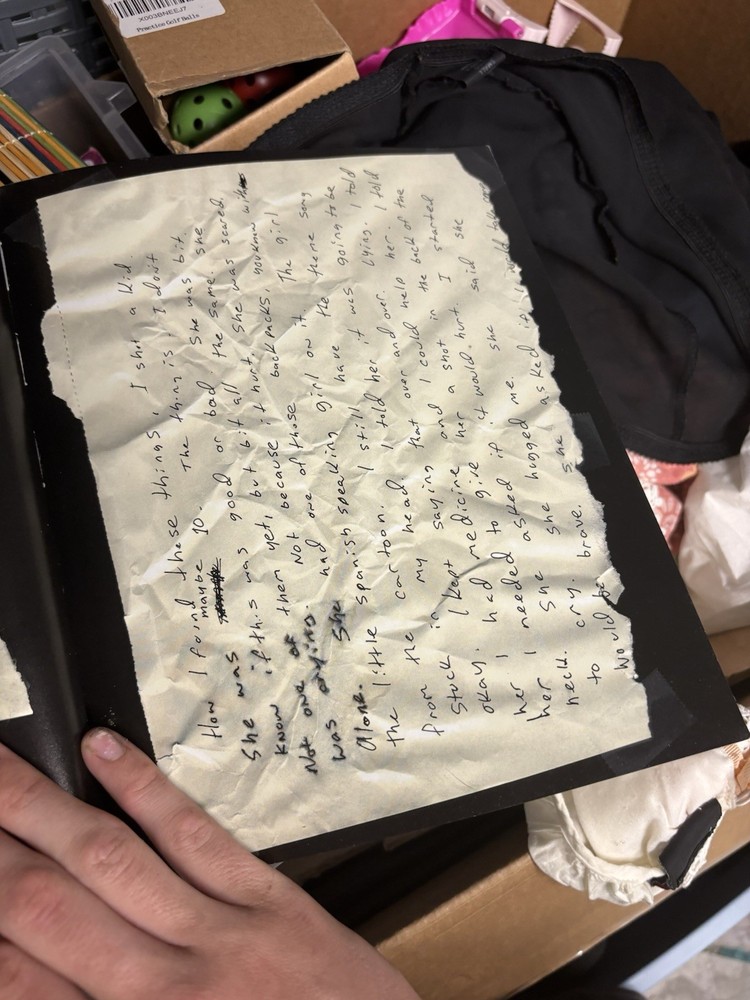 X003BNEEJ7
Practice Golf Balls
How I found these things, I shot a kid.
She was maybe 10. The thing is I don't
know if this was good or bad. She was bit
Not one of them yet, but bit all the same. She
was crying. Not because it hurt. She was scared,
Alone. She had one of those back packs, you know with
the little Spanish speaking girl on it. The girl
from the cartoon. I still have the theme song
stuck in my head. I told her it was going to be
okay. I kept saying that over and over. Lying. I told
her I had medicine and I could help her. I told
her I needed to give her a shot in the back of the
neck. She asked if it would hurt. I started
to cry. She hugged me. she said she
would be brave. She asked if I would be